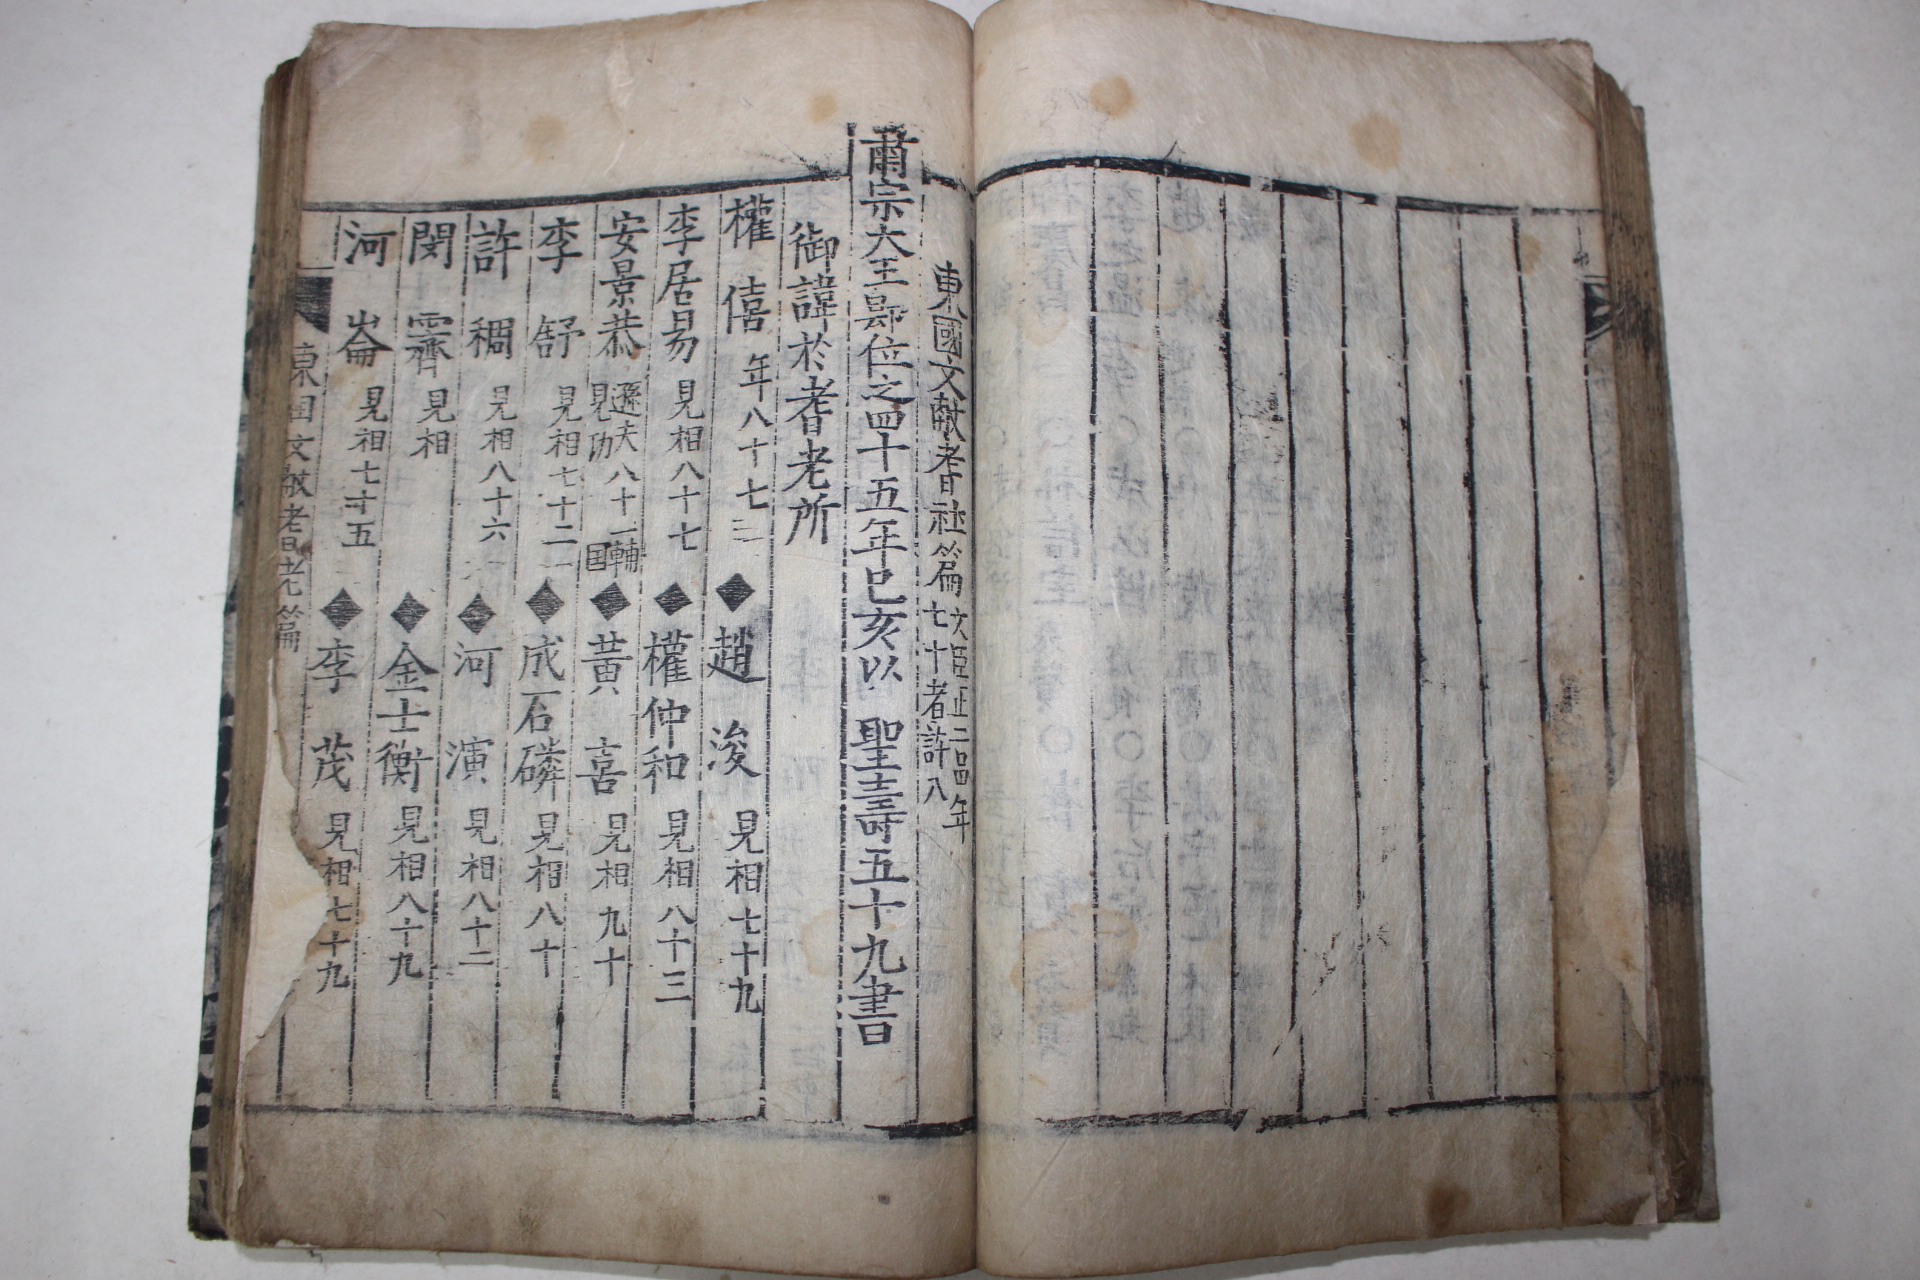 東國文獻耆社篇 文臣正二品年七十者許入
肅宗大王卽位之四十五年己亥以 聖壽五十九書
御諱於耆老所
權僖 年八十七 ◆趙浚 見相七十九
李居易 見相八十七 ◆權仲和 見相八十三
安景恭 見功八十一 輔国 ◆黃喜 見相九十
李舒 見相七十二 ◆成石磷 見相八十
許稠 見相八十六 ◆河演 見相八十二
閔霽 見相 ◆金士衡 見相八十九
河崙 見相七十五 ◆李茂 見相七十九
東国文献耆老篇